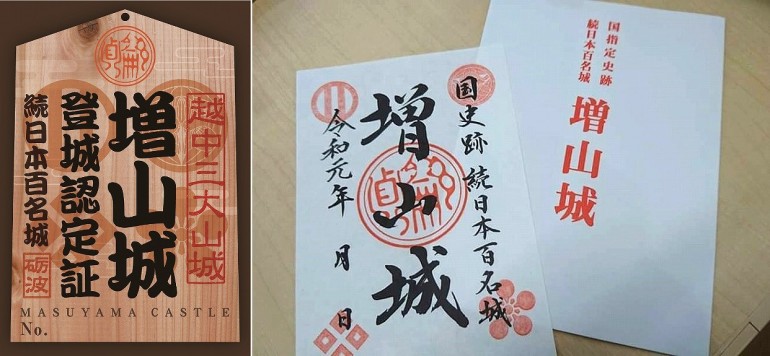 越中三大山城
増山城
登城認定証
続日本百名城
砺波
MASUYAMA CASTLE
No.
国史跡 続日本百名城
増山城
令和元年 月 日
国指定史跡
続日本百名城
増山城